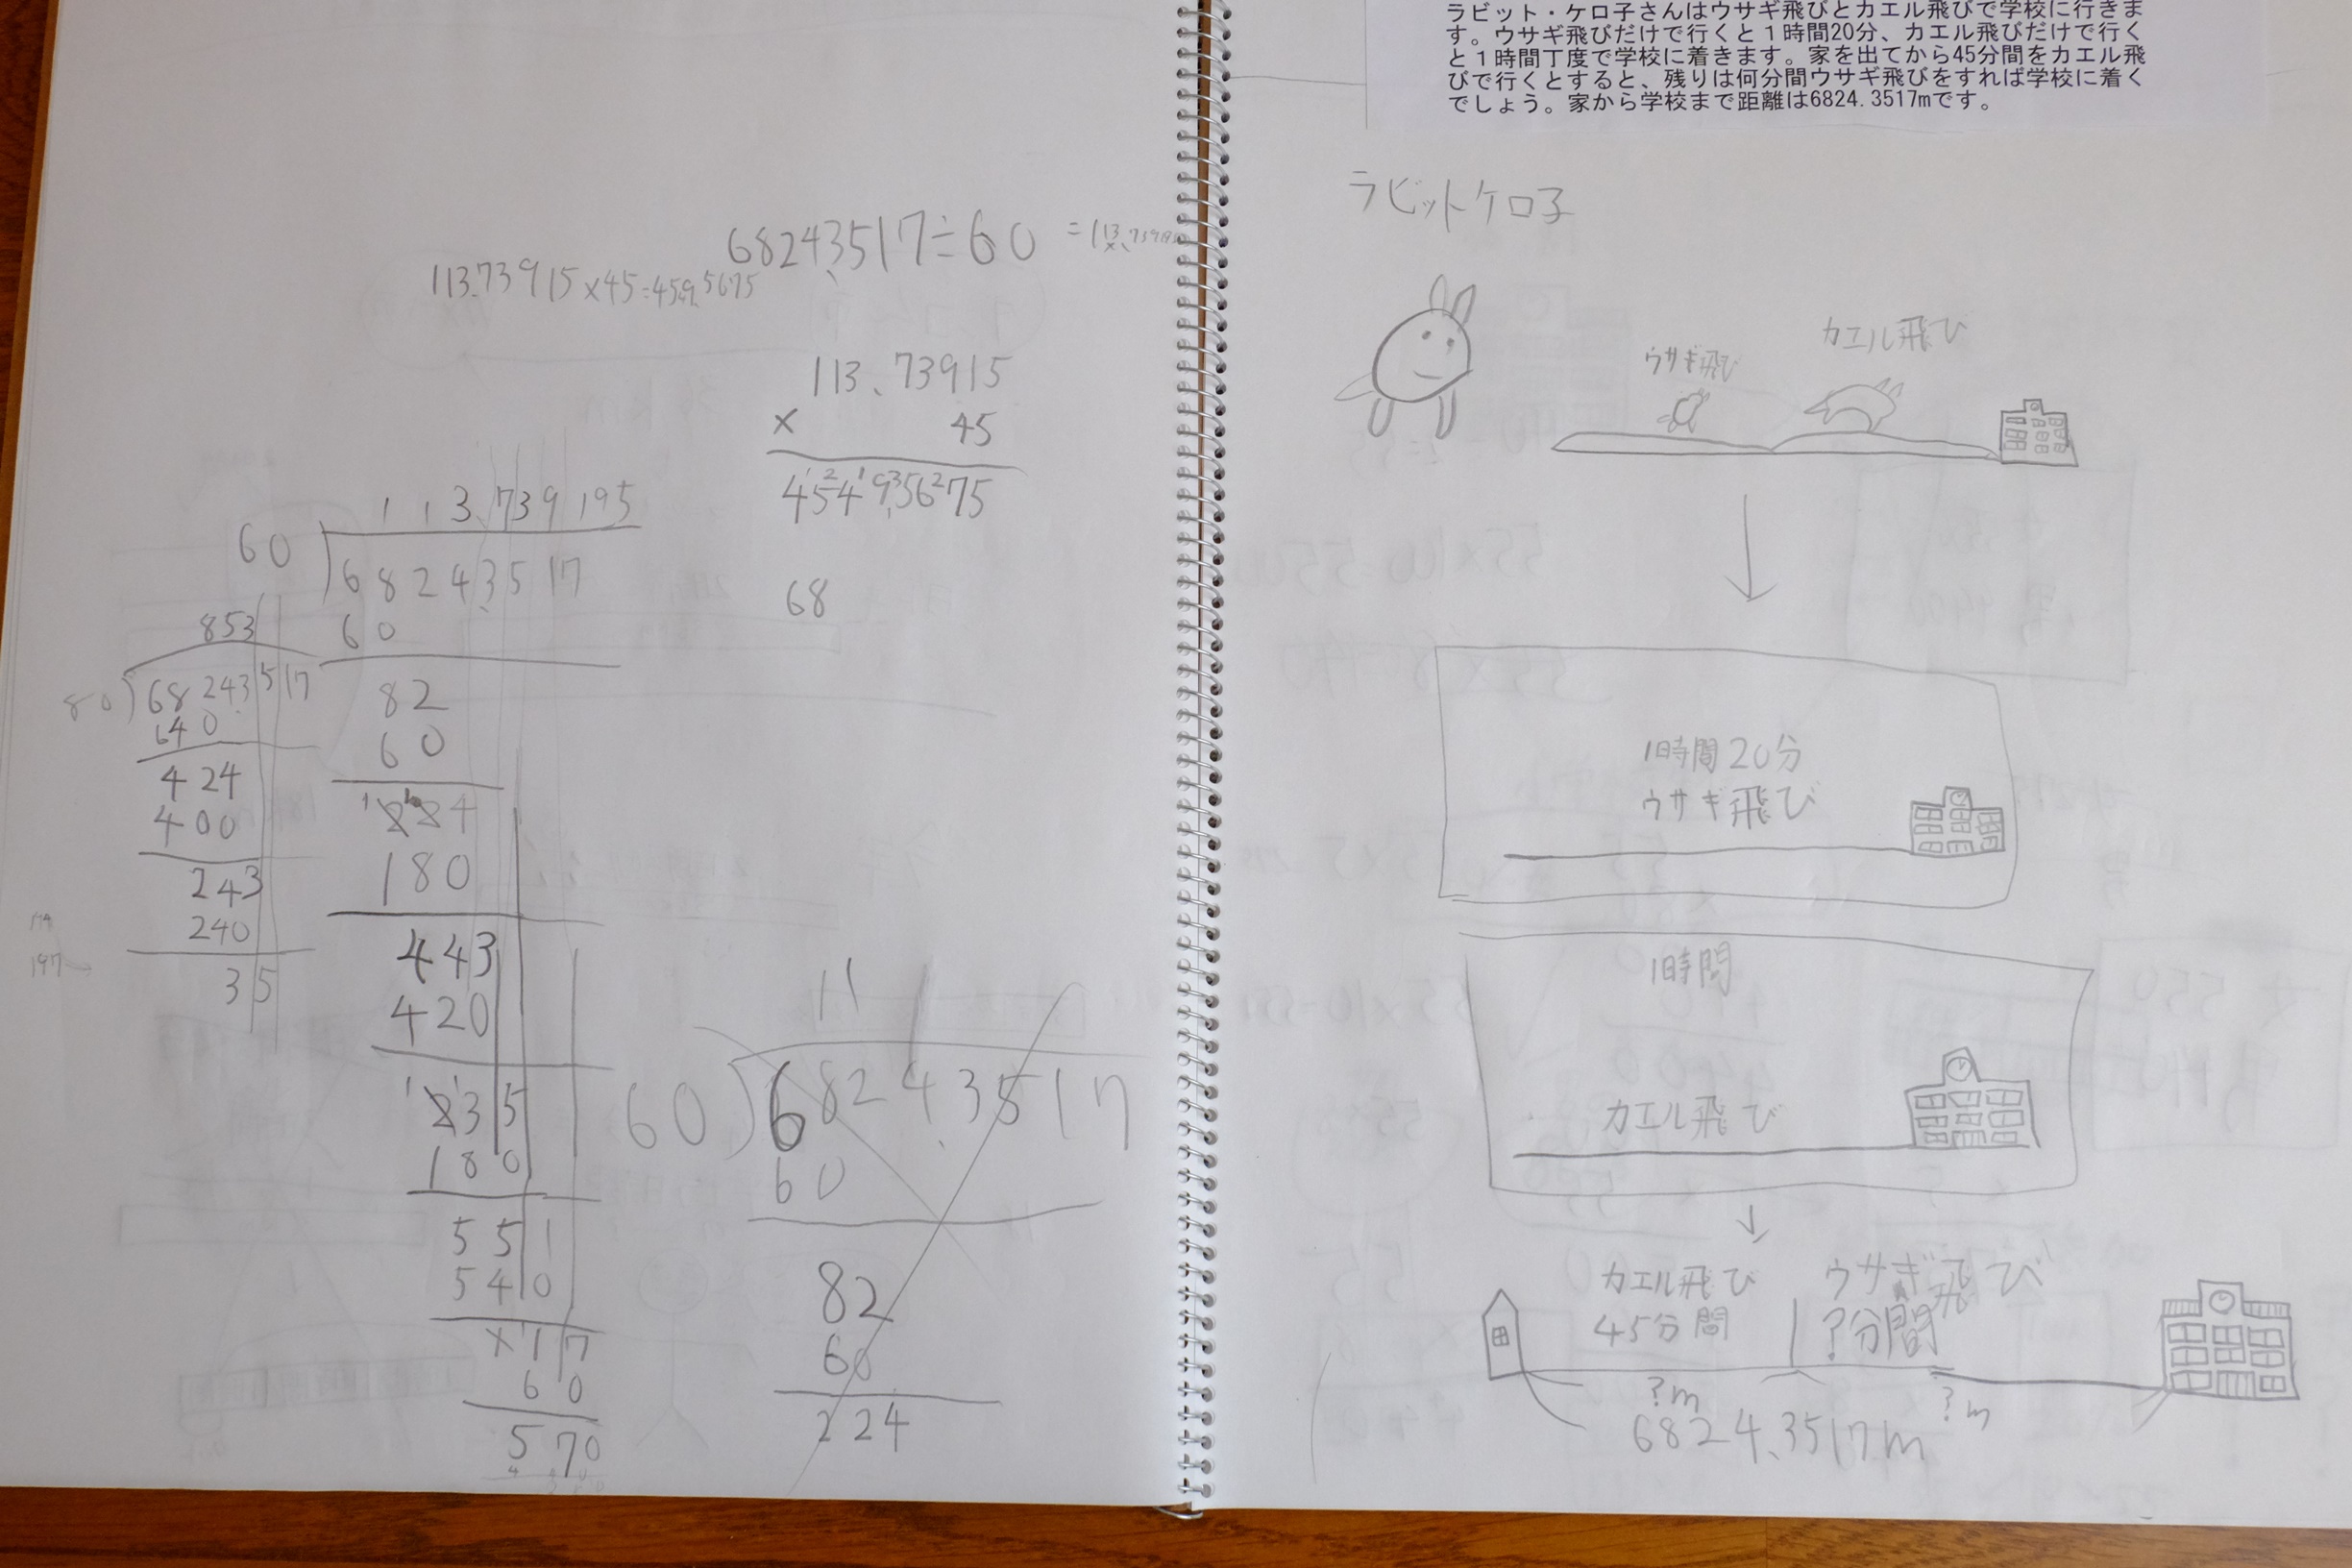 ラビット・ケロ子さんはウサギ飛びとカエル飛びで学校に行きま
す。ウサギ飛びだけで行くと1時間20分、カエル飛びだけで行く
と1時間丁度で学校に着きます。家を出てから45分間をカエル飛
びで行くとすると、残りは何分間ウサギ飛びをすれば学校に着く
でしょう。家から学校まで距離は6824.3517mです。
ラビットケロ子
ウサギ飛び
カエル飛び
1時間20分
ウサギ飛び
1時間
カエル飛び
カエル飛び
45分間
ウサギ飛び
?分間
?m
?m
6824.3517m
6824.3517÷60
113.73915×45=
113.73915
× 45
68
113.739195
60)6824.3517
60
82
60
224
180
443
420
235
180
551
540
117
60
570
853
80)6824.3517
640
424
400
243
240
35
11
60)6824.3517
60
82
60
224